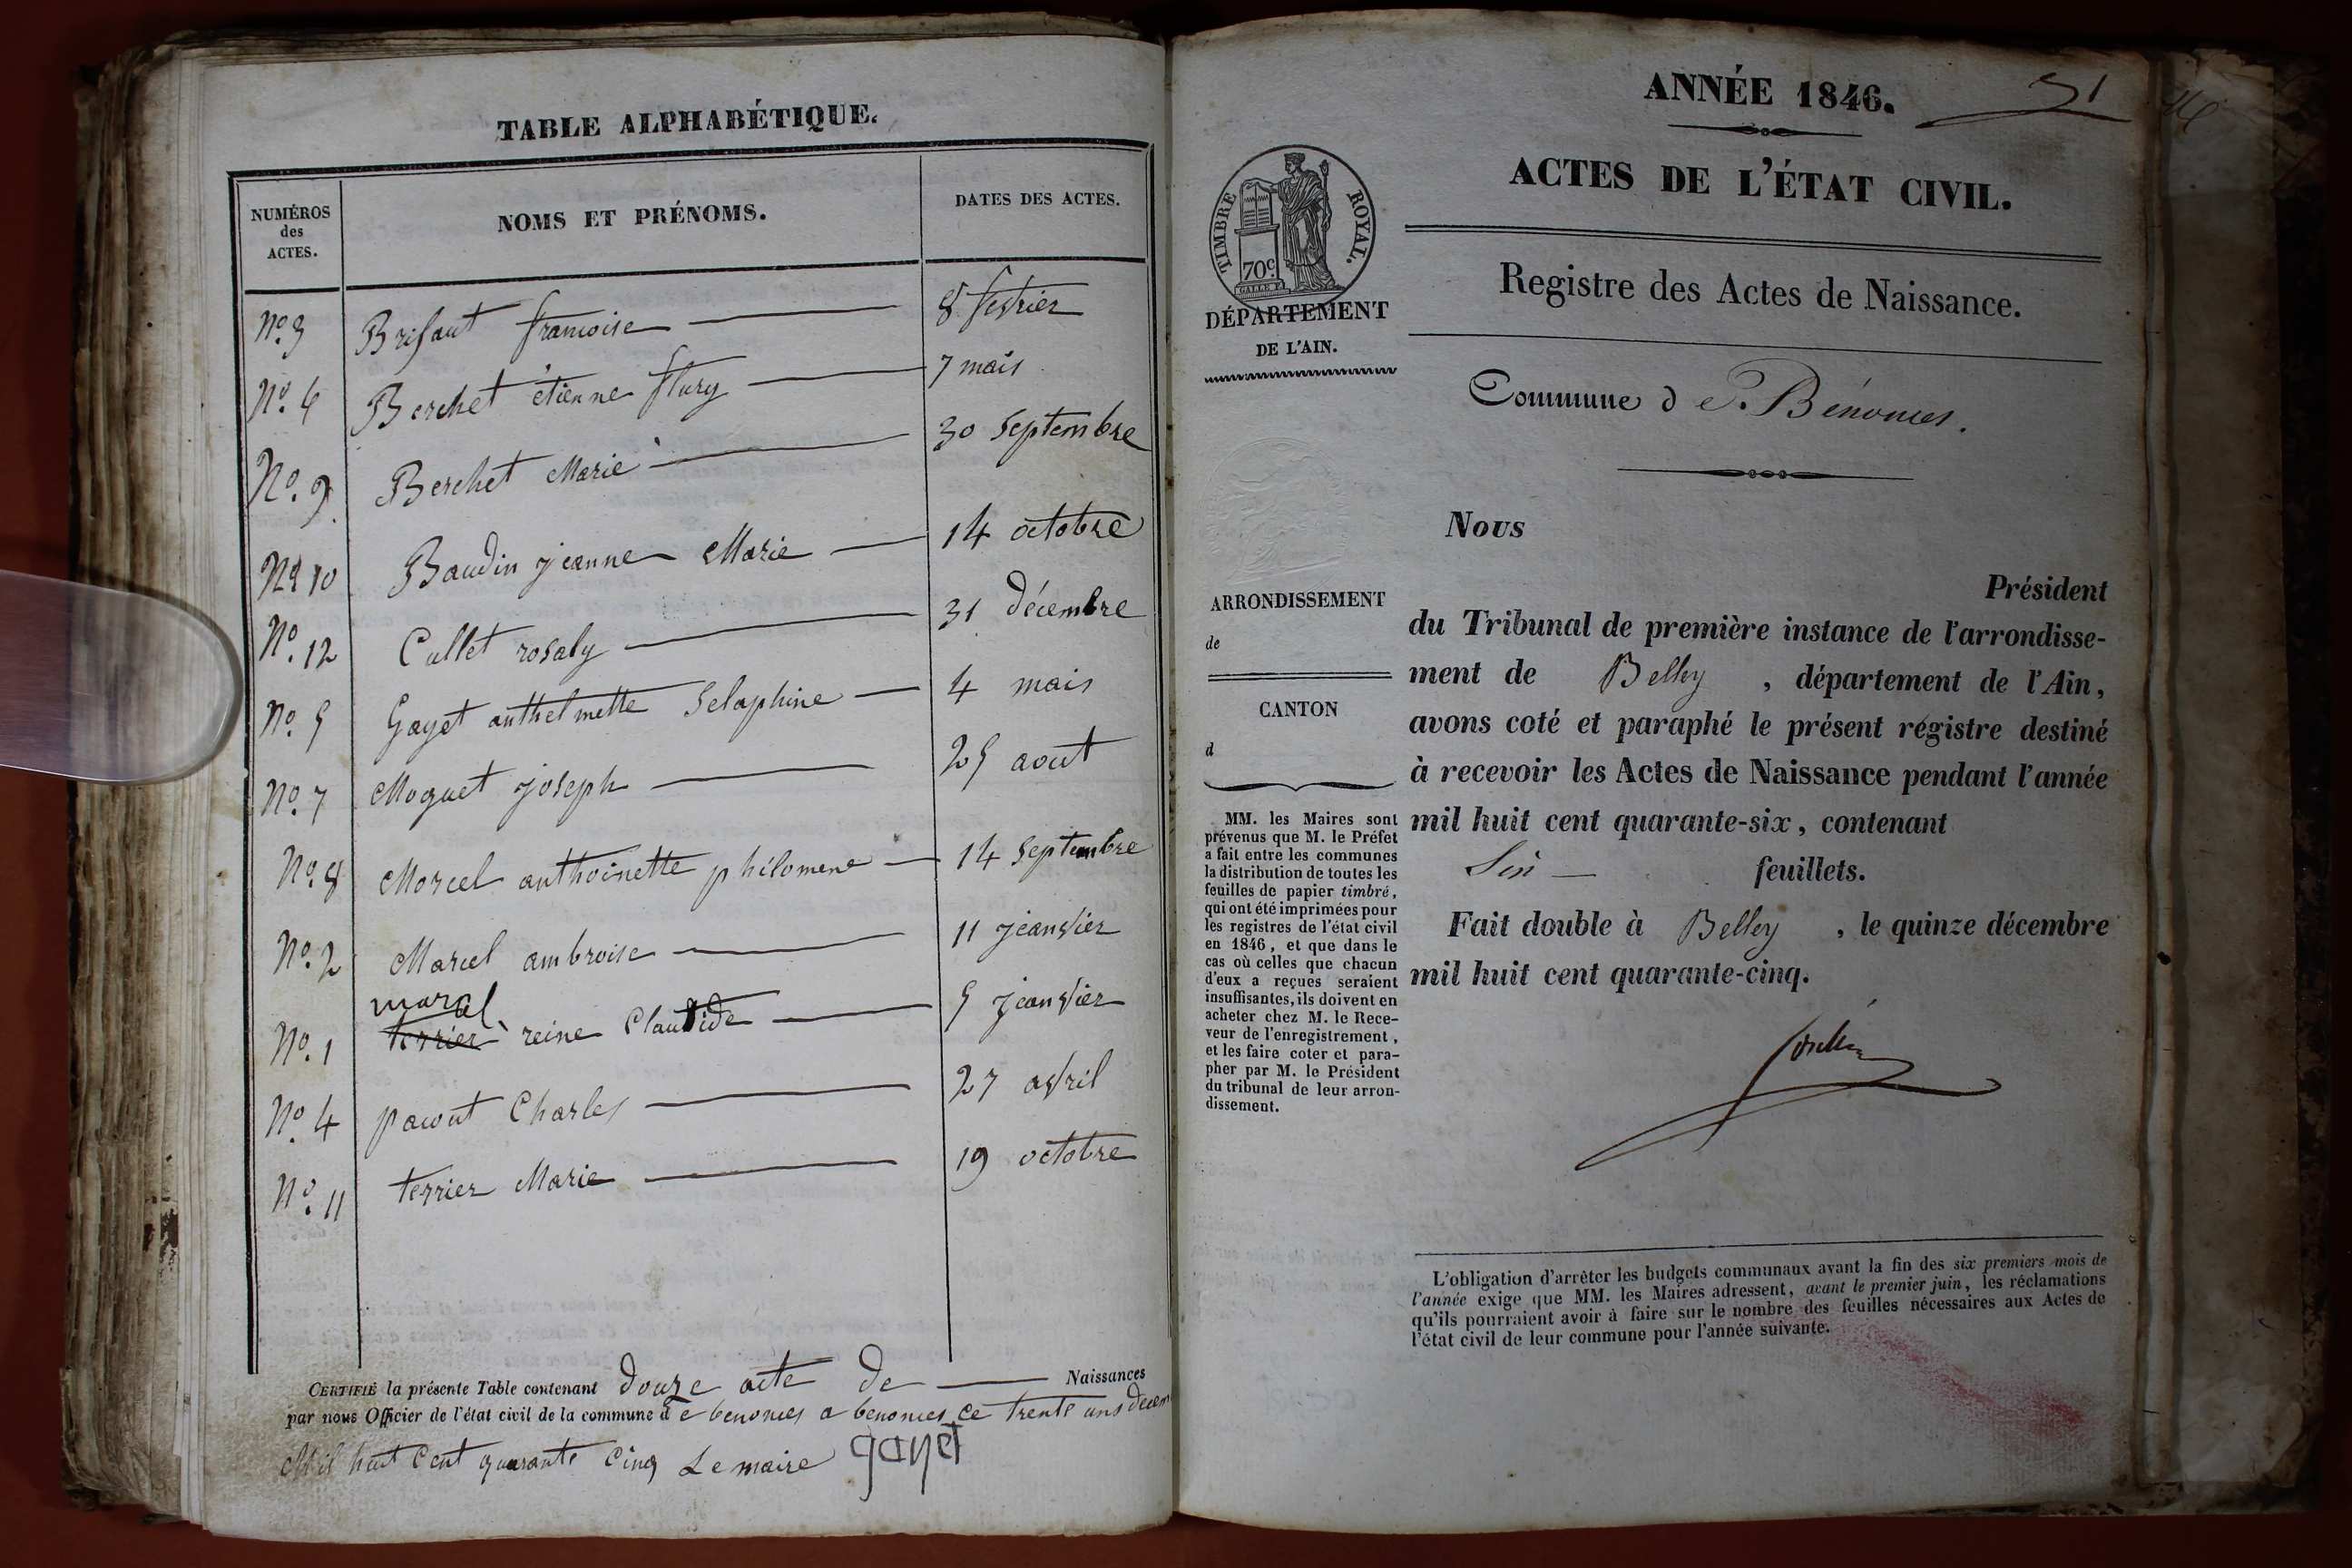 TABLE ALPHABÉTIQUE.
NUMÉROS
des
ACTES.
NOMS ET PRÉNOMS.
DATES DES ACTES.
No. 3 Brifaut francoise 8 fevrier
No. 6 Berchet étienne flury 7 mais
No. 9 Berchet Marie 30 Septembre
No 10 Baudin jeanne Marie 14 octobre
No. 12 Cullet rosaly 31 décembre
No. 5 Gayet anthelmette Selaphine 4 mais
No. 7 Moguet joseph 25 aout
No. 8 Marcel anthoinette philomene 14 Septembre
No. 2 Marcel ambroise 11 jeanvier
marcel
No. 1 terrier reine Claudide 5 jeanvier
No. 4 pacout Charles 27 avril
No. 11 terrier Marie 19 octobre
CERTIFIÉ la présente Table contenant douze acte de Naissances
par nous Officier de l'état civil de la commune d e benonces a benonces ce trente uns decem
Mil huit Cent quarante Cinq Le maire gayet
ANNÉE 1846.
31
ACTES DE L'ÉTAT CIVIL.
TIMBRE ROYAL.
70c.
DÉPARTEMENT
DE L'AIN.
Registre des Actes de Naissance.
Commune d e Bénonces.
ARRONDISSEMENT
de
CANTON
d
MM. les Maires sont
prévenus que M. le Préfet
a fait entre les communes
la distribution de toutes les
feuilles de papier timbré,
qui ont été imprimées pour
les registres de l'état civil
en 1846, et que dans le
cas où celles que chacun
d'eux a reçues seraient
insuffisantes, ils doivent en
acheter chez M. le Rece-
veur de l'enregistrement,
et les faire coter et para-
pher par M. le Président
du tribunal de leur arron-
dissement.
Nous
Président
du Tribunal de première instance de l'arrondisse-
ment de Belley, département de l'Ain,
avons coté et paraphé le présent régistre destiné
à recevoir les Actes de Naissance pendant l'année
mil huit cent quarante-six, contenant
Six feuillets.
Fait double à Belley, le quinze décembre
mil huit cent quarante-cinq.
L'obligation d'arrêter les budgets communaux avant la fin des six premiers mois de
l'année exige que MM. les Maires adressent, avant le premier juin, les réclamations
qu'ils pourraient avoir à faire sur le nombre des feuilles nécessaires aux Actes de
l'état civil de leur commune pour l'année suivante.